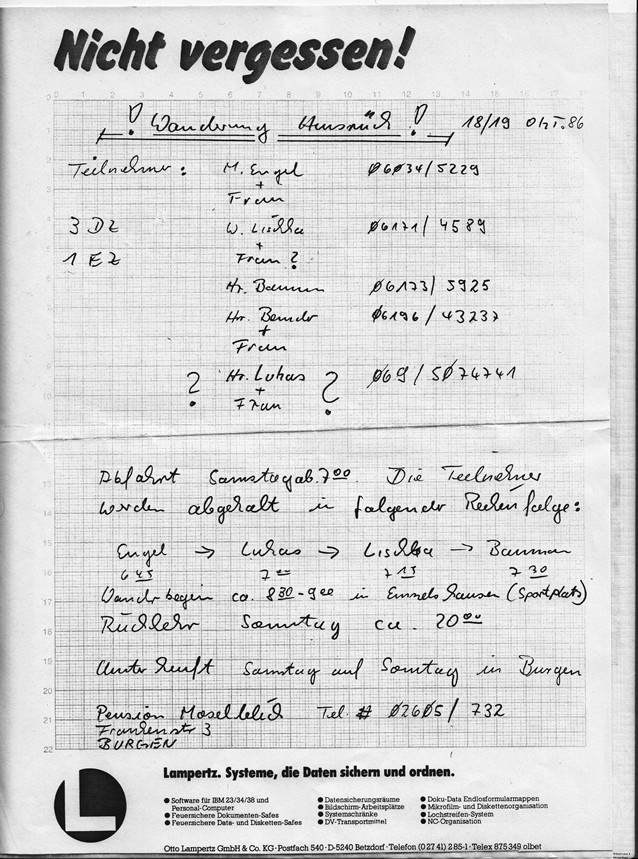 Nicht vergessen!
0 1 2 3 4 5 6 7 8 9 10 11 12 13 14 15 16 17
! Wanderung Hunsrück ! 18/19 Okt. 86
Teilnehmer: M. Engel 06034/5229
+
Frau
3 DZ W. Lischka 06171/4589
+
1 EZ Frau ?
Hr. Baumann 06173/5925
Hr. Bender 06196/43237
+
Frau
? Hr. Lukas ? 069/5074741
+
Frau
Abfahrt Samstag ab. 7 00. Die Teilnehmer
werden abgehalt in folgender Reihenfolge:
Engel → Lukas → Lischka → Baumann
6 45 7 00 7 15 7 30
Wanderbeginn ca. 8 30 - 9 00 in (Sportplatz)
Rückkehr Sonntag ca. 20 00
Unterkunft Samstag auf Sonntag in Burgen
Pension Moselblick Tel. # 02605/732
Frankenstr 3
BURGEN
Lampertz. Systeme, die Daten sichern und ordnen.
● Software für IBM 23/34/38 und Personal-Computer
● Feuersichere Dokumenten-Safes
● Feuersichere Data- und Disketten-Safes
● Datensicherungsräume
● Bildschirm-Arbeitsplätze
● Systemschränke
● DV-Transportmittel
● Doku-Data Endlosformularmappen
● Mikrofilm- und Diskettenorganisation
● Lochstreifen-System
● NC-Organisation
Otto Lampertz GmbH & Co. KG · Postfach 540 · D-5240 Betzdorf · Telefon (0 27 41) 2 85-1 · Telex 875 349 olbet